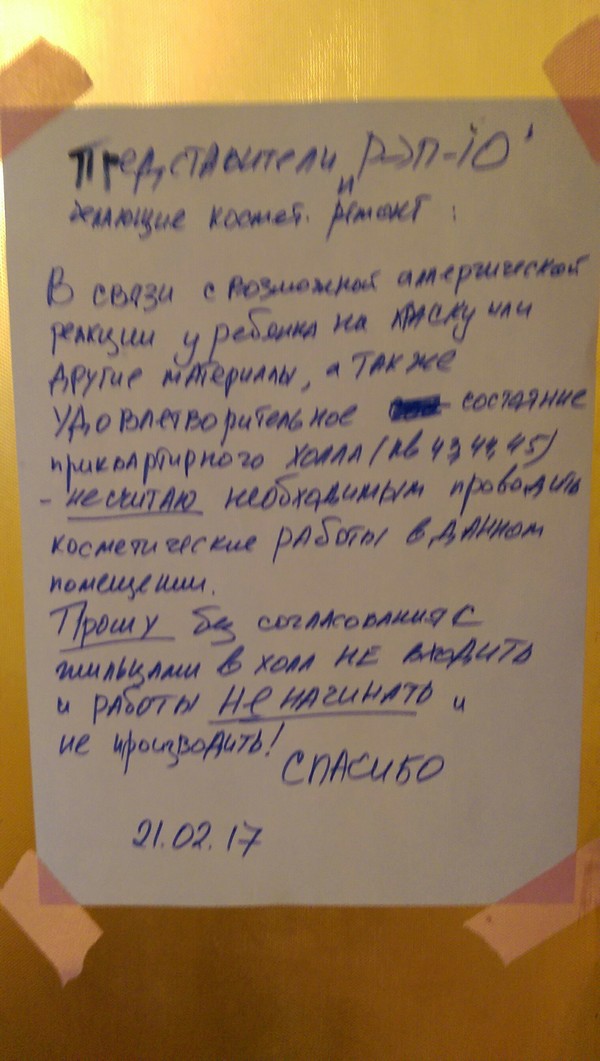 Представители "РЭП-10"
и
делающие космет. ремонт:
В связи с возможной аллергической
реакции у ребёнка на краску или
другие материалы, а также
удовлетворительное состояние
приквартирного холла (кв 43,44,45)
- не считаю необходимым проводить
косметические работы в данном
помещении.
Прошу без согласования с
жильцами в холл НЕ входить
и работы НЕ НАЧИНАТЬ и
не производить!
СПАСИБО
21.02.17